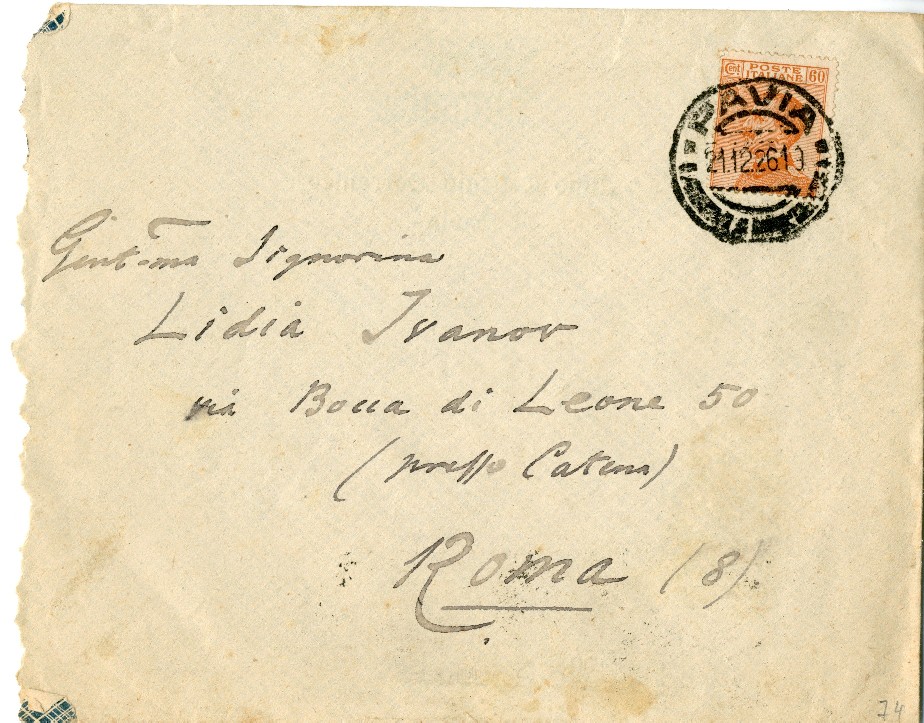 Cent. POSTE ITALIANE 60
PAVIA
21.12.26 19
Gent-ma Signorina
Lidia Ivanov
via Bocca di Leone 50
(presso Catena)
Roma (8)
74